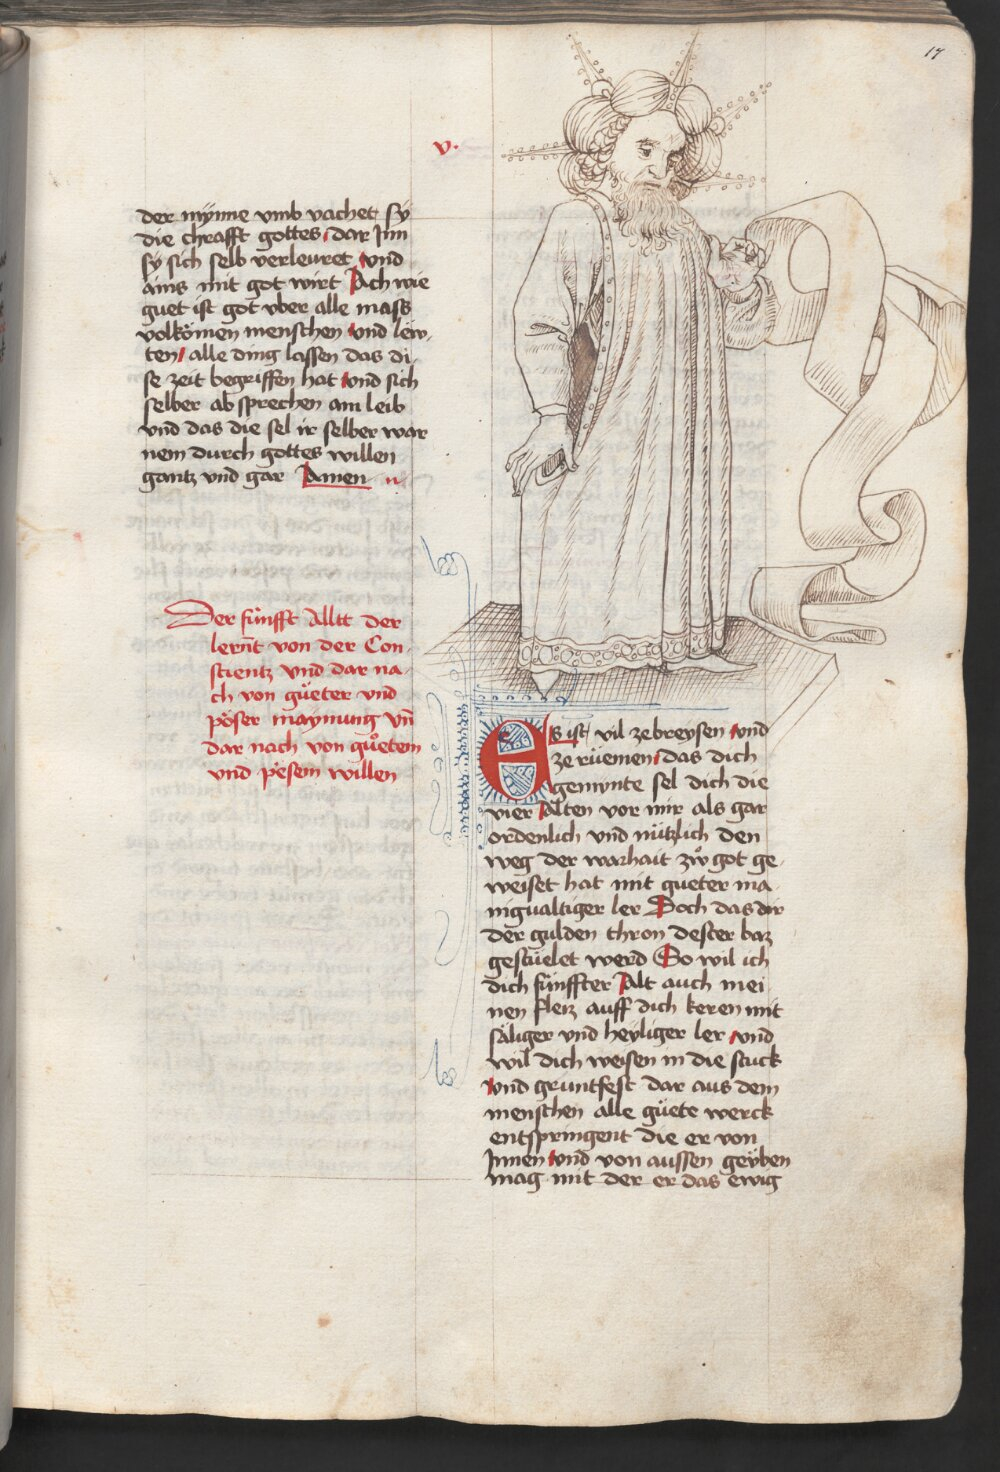 17
v.
der mynne vmb vachet sy
die chrafft gottes dar Inn
sy sich selb verleuret vnd
ains mit got wirt Ach wie
guet ist got vber alle mass
volkömen menschen vnd lew-
ten alle ding lassen das di
se zeit begriffen hat vnd sich
selber ab sprechen am leib
vnd das die sel ir selber war
nem durch gottes willen
gantz vnd gar Amen
Der fünfft Alltt der
lernt von der Con
scientz vnd dar na
ch von güeter vnd
pöser maynung vn̄
dar nach von guͦetem
vnd pesem willen
Es ist vil ze breysen vnd
ze rüemen das dich
gemynte sel dich die
vier Alten vor mir als gar
ordenlich vnd nützlich den
weg der warhait zw got ge-
weiset hat mit gueter ma-
nigualtiger ler Doch das dir
der gulden thron dester baz
gestüelet werd So wil ich
dich fünffter Alt auch mei
nen fleiz auff dich keren mit
säliger vnd heyliger ler vnd
wil dich weisen in die stuck
vnd gruntfest dar aus dem
menschen alle güete werck
entspringent die er von
Innen vnd von aussen geyben
mag mit der er das ewig